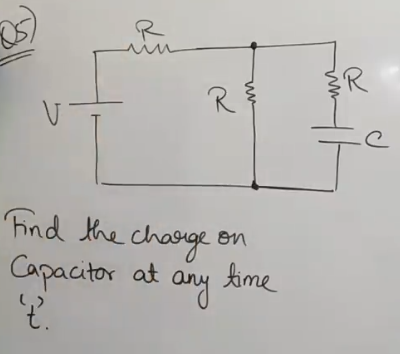 Q5)
R
R
R
V
C
Find the charge on
Capacitor at any time
't'.